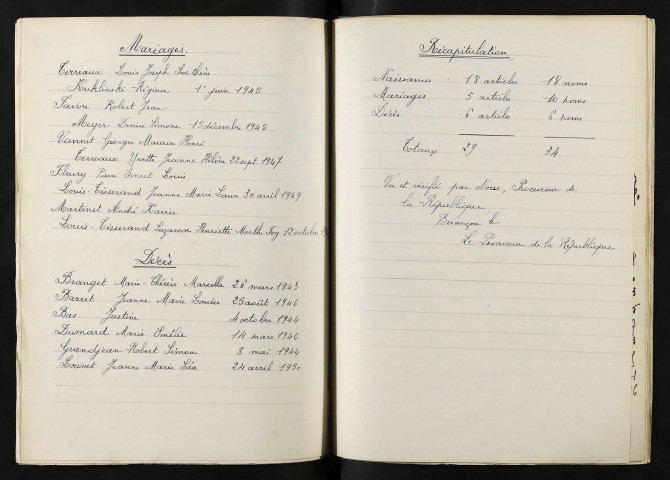 Mariages.
Terreaux Louis Joseph Sosthène
Kuklinski Régina 1er juin 1945
Faivre Robert Jean
Meyer Denise Simone 15 décembre 1945
Viennet Georges Maurice Henri
Terreaux Yvette Jeanne Hélène 22 sept. 1947
Fleury Pierre Ernest Louis
Louis-Tisserand Jeanne Marie Laure 30 avril 1949
Martinet André Xavier
Louis-Tisserand Suzanne Henriette Marthe Foy 12 octobre
Décès
Branget Marie-Thérèse Marcelle 26 mars 1943
Barret Jeanne Marie Louise 25 août 1946
Bas Justine 4 octobre 1944
Dumard Marie Emélie 14 mars 1946
Grandjean Robert Simon 8 mai 1944
Louvet Jeanne Marie Léa 24 avril 1950
Récapitulation
Naissances 18 articles 18 noms
Mariages 5 articles 10 noms
Décès 6 articles 6 noms
Totaux 29 34
Vu et vérifié par Nous, Procureur de
la République
Besançon le
Le Procureur de la République